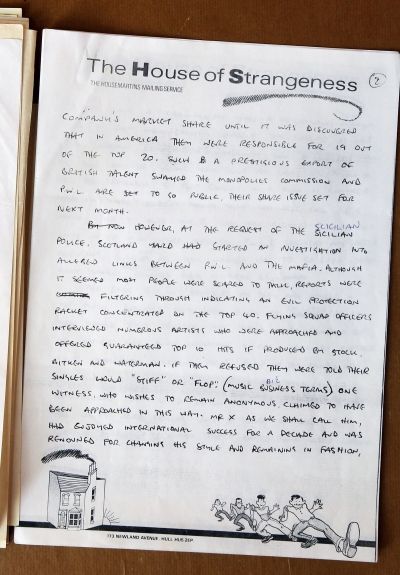 The House of Strangeness
THE HOUSEMARTINS MAILING SERVICE
2
COMPANY'S MARKET SHARE UNTIL IT WAS DISCOVERED
THAT IN AMERICA THEY WERE RESPONSIBLE FOR 19 OUT
OF THE TOP 20. SUCH A PRESTIGIOUS EXPORT OF
BRITISH TALENT SWAYED THE MONOPOLIES COMMISSION AND
PWL ARE SET TO GO PUBLIC, THEIR SHARE ISSUE SET FOR
NEXT MONTH.
HOWEVER, AT THE REQUEST OF THE SICILIAN
SCICILIAN
POLICE, SCOTLAND YARD HAD STARTED AN INVESTIGATION INTO
ALLEGED LINKS BETWEEN PWL AND THE MAFIA. ALTHOUGH
IT SEEMED MOST PEOPLE WERE SCARED TO TALK, REPORTS WERE
FILTERING THROUGH INDICATING AN EVIL PROTECTION
RACKET CONCENTRATED ON THE TOP 40. FLYING SQUAD OFFICERS
INTERVIEWED NUMEROUS ARTISTS WHO WERE APPROACHED AND
OFFERED GUARANTEED TOP 10 HITS IF PRODUCED BY STOCK,
AITKEN AND WATERMAN. IF THEY REFUSED THEY WERE TOLD THEIR
SINGLES WOULD "STIFF" OR "FLOP". (MUSIC BUSINESS TERMS) ONE
BIZ
WITNESS, WHO WISHES TO REMAIN ANONYMOUS CLAIMED TO HAVE
BEEN APPROACHED IN THIS WAY. MR X AS WE SHALL CALL HIM,
HAD ENJOYED INTERNATIONAL SUCCESS FOR A DECADE AND WAS
RENOWNED FOR CHANGING HIS STYLE AND REMAINING IN FASHION,
113 NEWLAND AVENUE, HULL HU5 2EP